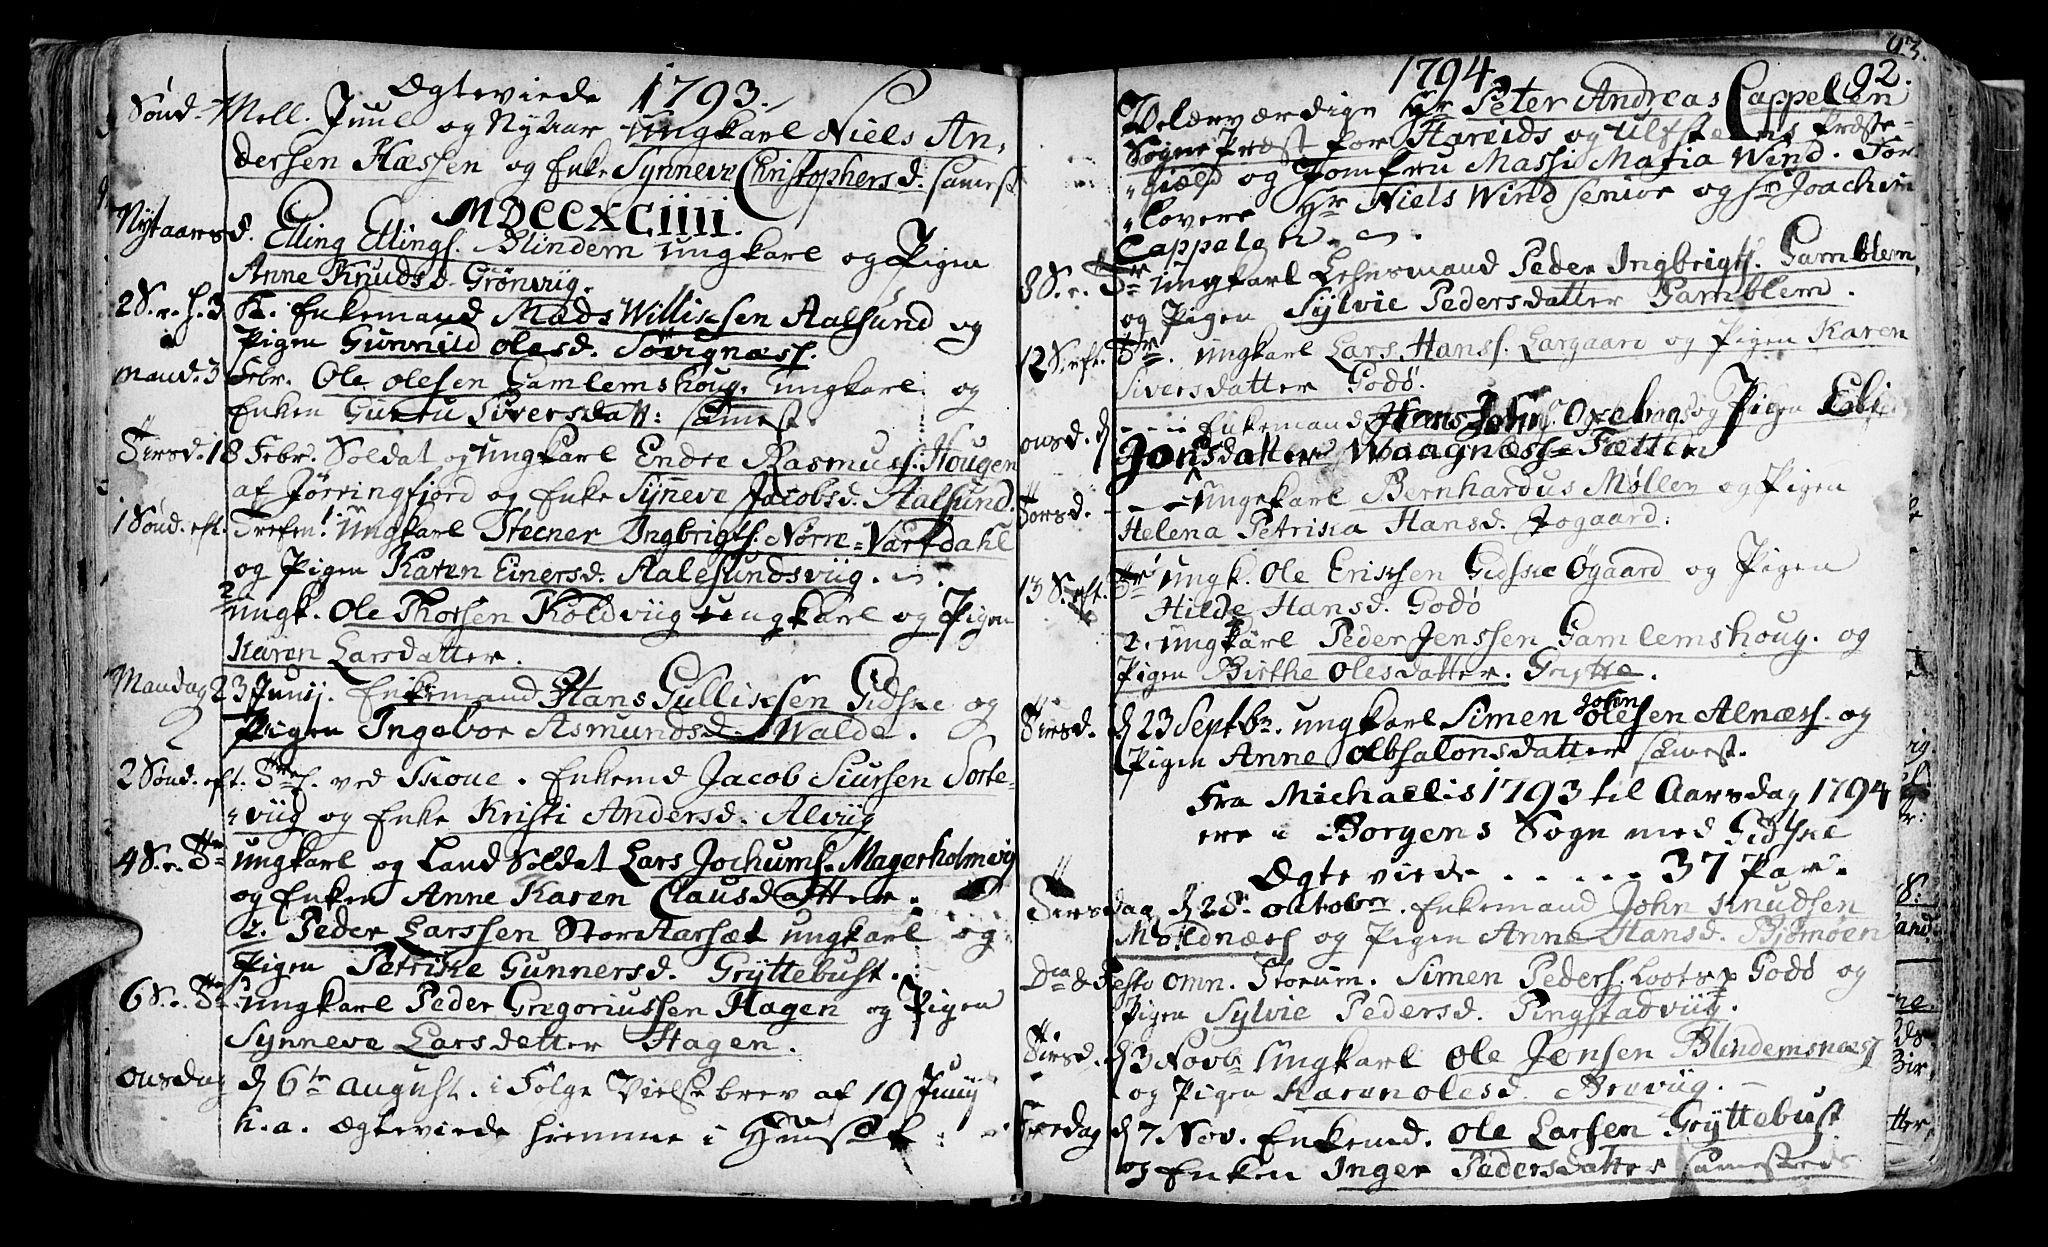 Ægteviede 1793.
Sönd. Mell. Juul og NyAar Ungkarl Niels An-
dersen Hæssen og Enke Synneve Christophersd. samest.
MDCCXCIIII.
Nytaarsd. Elling Ellings. Blindem ungkarl og Pigen
Anne Knudsd. Grönviig.
2 S. e. H. 3 K. Enkemand Mads Williksen Aalsund og
Pigen Gunnild Olesd. Sövignæss.
Mand. 3 Febr. Ole Olesen Gamlemshoug. ungkarl og
Enken Guru Siversdatt: samest.
Tirsd. 18 Febr. Soldat og ungkarl Endre Rasmuss. Hougen
af Jörringfjord og Enke Synneve Jacobsd. Aalsund.
1 Sönd. eft. Trefen! Ungkarl Stecner Ingbrigts. Nørre-Vartdahl
og Pigen Karen Einersd. Aalesundsviig.
2 ungk. Ole Thorsen Koldviig ungkarl og Pigen
Karen Larsdatter.
Mandag 23 Junij. Enkemand Hans Gulliksen Gidske og
Pigen Ingebor Asmundsd. Walde.
2 Sönd. eft. Tref. ved Skoue. Enkemd Jacob Siursen Sorte-
viig og Enke Kristi Andersd. Alviig
4 S. e. Tr ungkarl og Land Soldat Lars Jochums. Magerholmvig
og Enken Anne Karen Clausdatter.
2. Peder Larssen StorAarsæt ungkarl og
Pigen Petrike Gunnersd. Gryttebust.
6 S. e. Tr ungkarl Peder Gregoriussen Hagen og Pigen
Synneve Larsdatter Hagen.
Onsdag d 6te august. i Følge Vielsebrev af 19 Junij
h. a. Ægteviede hiemme i Huuset:
93.
1794 92.
Velærværdige Hr Peter Andreas Cappelen
Sogne Præst for Hareids og Ulfsteens Præste-
giæld og Jomfru Massi Maria Wind. For-
lovere Hr Niels Wind senior og Sr Joachim
Cappelen.
8 S. e. Tr ungkarl Lehnsmand Peder Ingbrigts. Gamblem
og Pigen Sylvie Pedersdatter Gamblem.
12 S. eft. Tr. ungkarl Lars Hanss. Largaard og Pigen Karen
Siversdatter Godø.
Onsd. d Enkemand Hans Johns. Oxelnas og Pigen Eli
Jonsdatter Waagnæss-Fætten
Torsd. Ungekarl Bernhardus Møller og Pigen
Helena Petrika Hansd. Jogaard.
13 S. eft. Tr ungk. Ole Eriksen Gidske Øgaard og Pigen
Hilde Hansd. Godø
2. ungkarl Peder Jenssen Gamlemshoug. og
Pigen Birthe Olesdatter. Grytte.
Tirsd. d 23 Septbr. ungkarl Simen Josen Olesen Alnæss. og
Pigen Anne Absalonsdatter samest.
Fra Michaelis 1793 til Aarsdag 1794
ere i Borgens Sogn med Gidske
Ægteviede . . . . . 37 Par.
Tirsdag d 28 October. Enkemand John Knudsen
Moldnæss og Pigen Anne Hansd. Bjömöen
Dca & Festo Omn. Storum. Simen Peders. Loots Godø og
Pigen Sylvie Pedersd. Pingstadviig.
Tirsd. d 3 Novbr Ungkarl Ole Jonsen Blindemsnæss
og Pigen Karen Olesd. Areviig.
Fredag d 7 Nov. Enkemd. Ole Larsen Gryttebust
og Enken Inger Pedersdatter samesteds